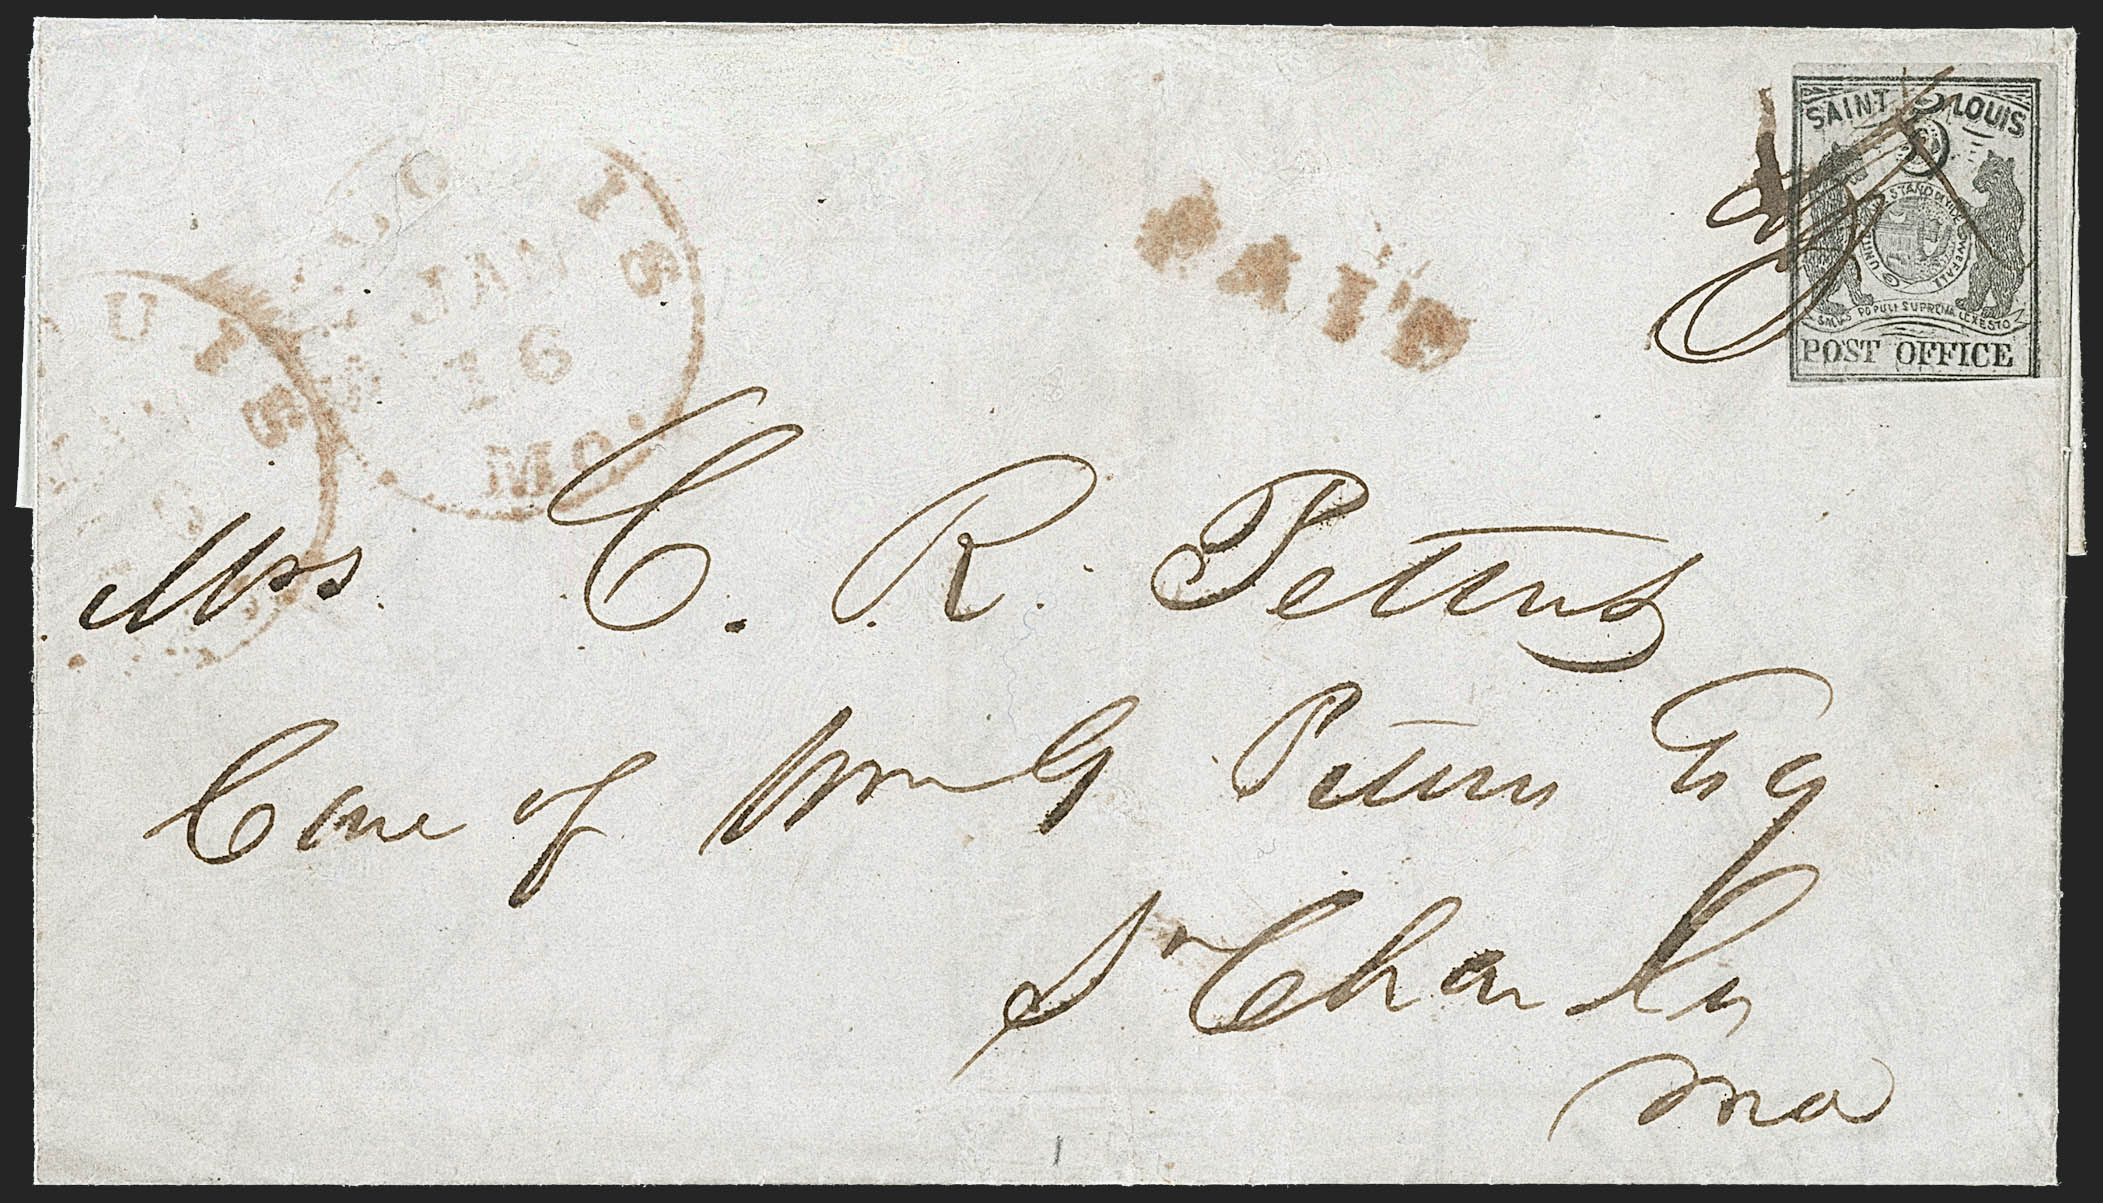 SAINT LOUIS
5
UNITED WE STAND DIVIDED WE FALL
SALUS POPULI SUPREMA LEX ESTO
POST OFFICE
PAID
LOUIS
JAN
16
MO.
UIS
Mrs. C. R. Pettus
Care of Wm G Pettus Esq
St Charles
Mo